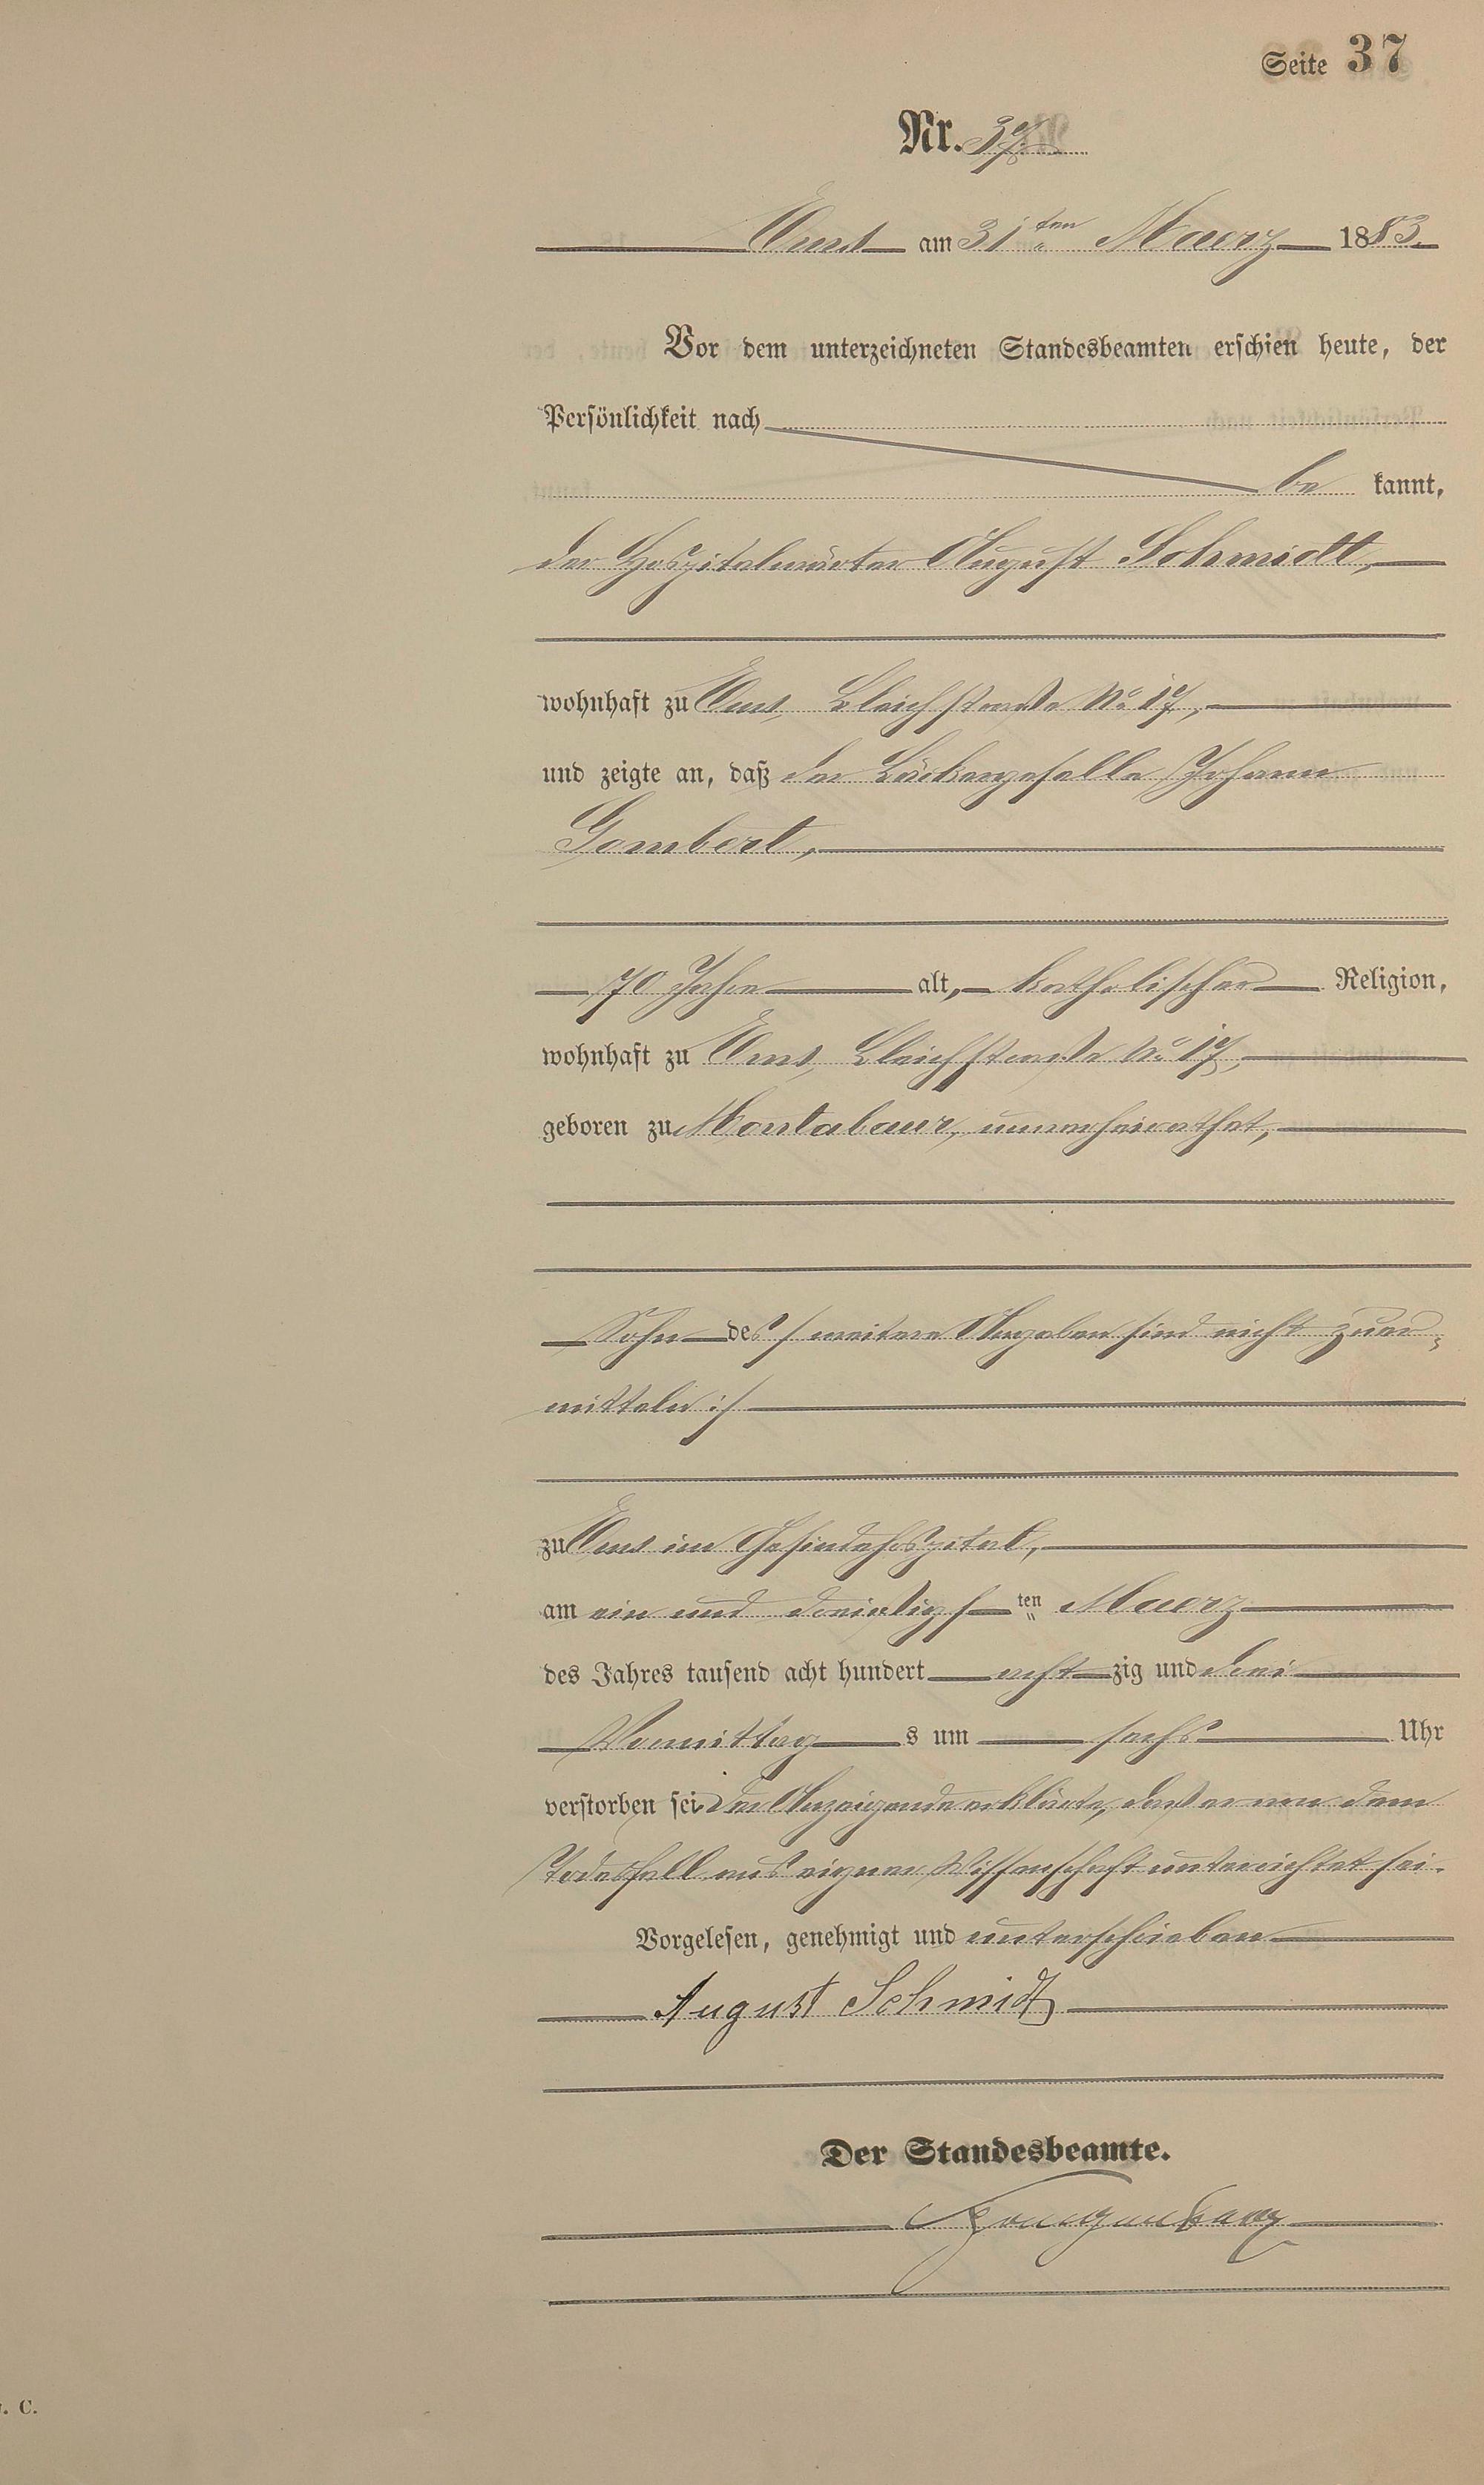 Seite 37
Nr. 37.
Ems am 31ten Maerz 1883.
Vor dem unterzeichneten Standesbeamten erschien heute, der
Persönlichkeit nach
be kannt,
der Hospitalwärter August Schmidt,
wohnhaft zu Ems, Bleichstraße No 17,
und zeigte an, daß der Bäckergeselle Johann
Gombert,
70 Jahre alt, katholischer Religion,
wohnhaft zu Ems, Bleichstraße No 17,
geboren zu Montabaur, unverheirathet,
Sohn des /: weitere Angaben sind nicht zu er-
mitteln :/
zu Ems im Gesindehospital,
am ein und dreißigsten Maerz
des Jahres tausend acht hundert acht zig und drei
Vormittag s um sechs Uhr
verstorben sei. Der Anzeigende erklärte, daß er von dem
Todesfall aus eigner Wissenschaft unterrichtet sei.
Vorgelesen, genehmigt und unterschrieben
August Schmidt
Der Standesbeamte.
. C.